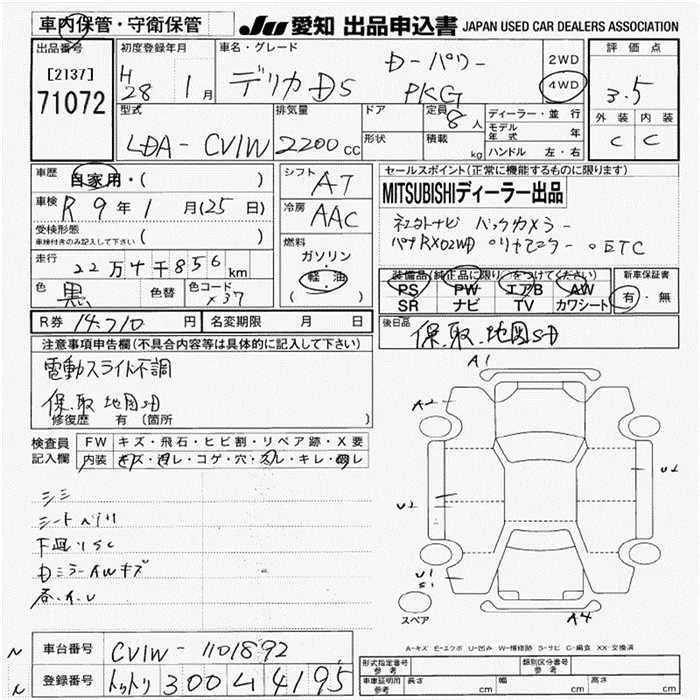 車内保管・守衛保管
JU 愛知 出品申込書 JAPAN USED CAR DEALERS ASSOCIATION
出品番号
[2137]
71072
初度登録年月
H28 1月
車名・グレード
デリカD5
D-パワー
PKG
2WD
4WD
評価点
3.5
外装 内装
C C
型式
LDA-CV1W
排気量
2200cc
ドア
形状
定員 8人
積載 kg
ディーラー・並行
モデル年式 年
ハンドル 左・右
車歴
自家用・( )
車検 R 9年 1月(25日)
受検形態
車検付きのみ記入して下さい ( )
走行 22万4千856km
色 黒 色替 色コード X37
シフト AT
冷房 AAC
燃料
ガソリン・
軽・油
( )
セールスポイント(正常に機能するものに限ります)
MITSUBISHIディーラー出品
バックカメラー
ETC
装備品(純正品に限り)をつけてください
PS PW エアB AW
SR ナビ TV カワシート
新車保証書
有・無
R券 14,710円 名変期限 月 日
後日品
保.取.地図SD
注意事項申告欄(不具合内容等は具体的に記入して下さい)
電動スライド不調
保.取 地図SD
修復歴 有 (箇所
検査員記入欄
FW キズ・飛石・ヒビ割・リペア跡・X要
内装 キズ・汚レ・コゲ・穴・スレ・キレ・凹レ
シミ
シートヘリ
下皿リSC
DミラーAWキズ
A1
A2
U1
U2
U1
S1
A4
スペア
A-キズ E-エクボ U-凹み W-補修跡 S-サビ C-腐食 XX-交換済
車台番号 CV1W-1101892
登録番号 トットリ 300 ム 4195
形式指定番号
参考
類別区分番号
参考
車両証明用
参考
長さ cm 幅 cm 高さ cm